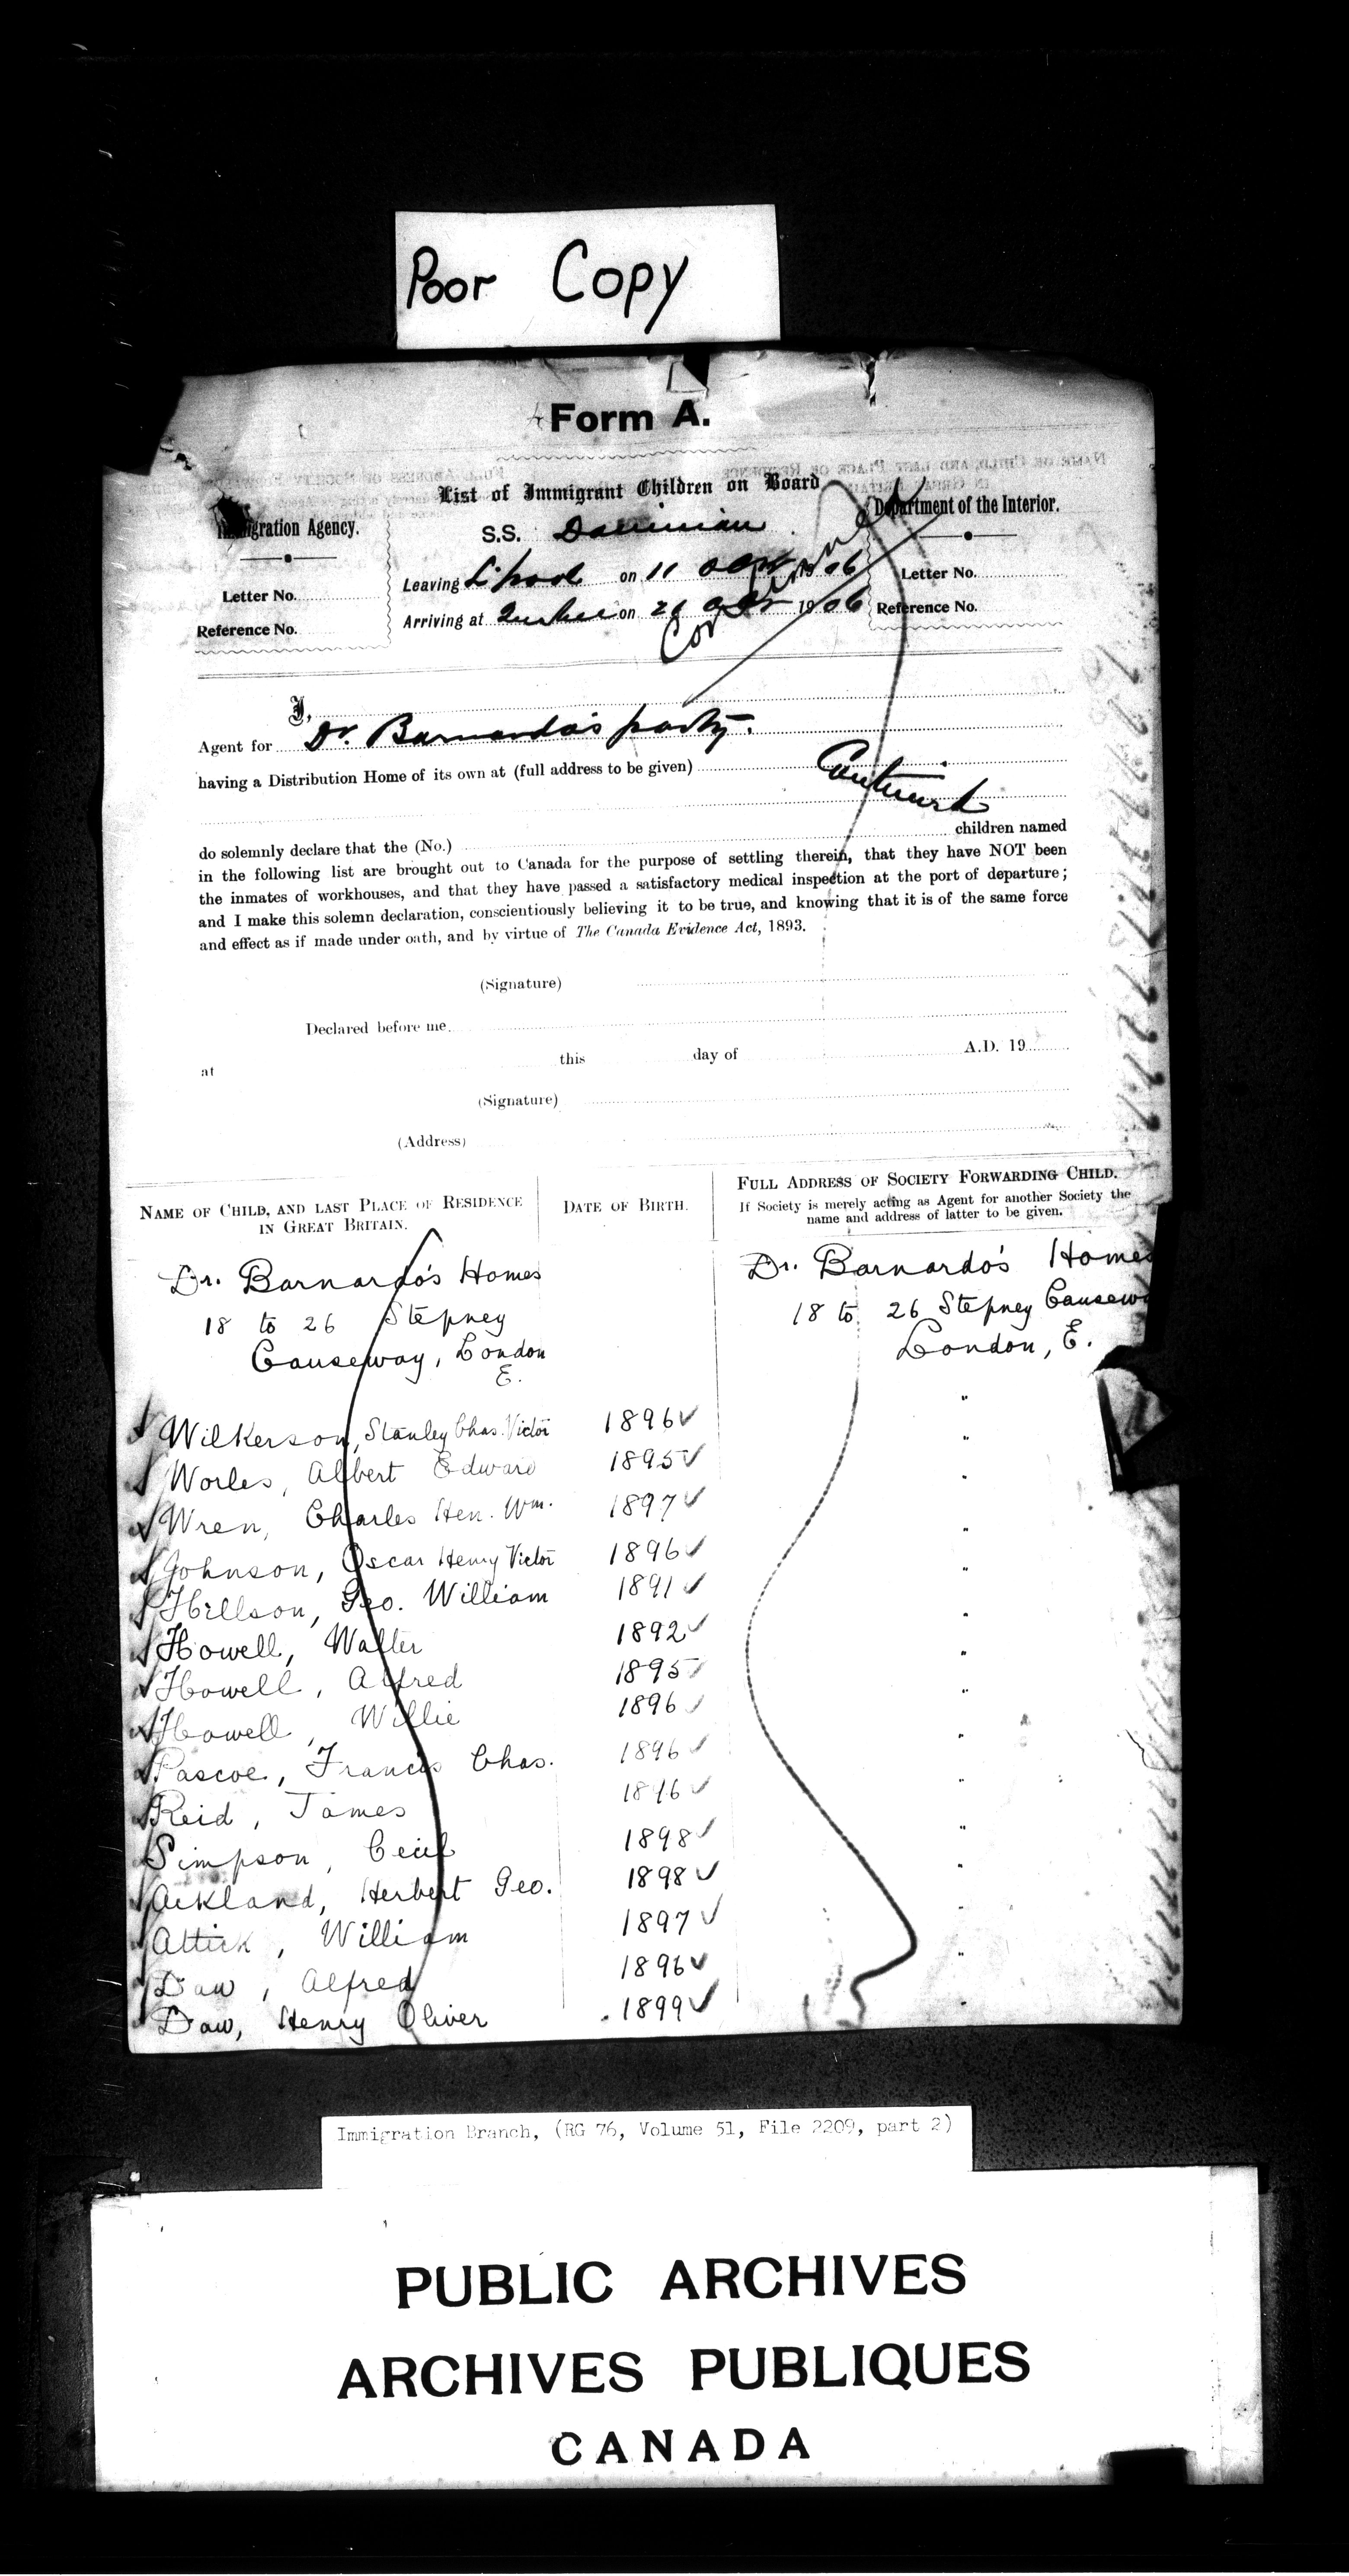 Poor Copy
Form A.
List of Immigrant Children on Board
Immigration Agency.
Department of the Interior.
S.S. Dominion
Leaving L'pool on 11 Oct 1906
Arriving at Quebec on 21 Oct 1906
Continued
Letter No.
Reference No.
Letter No.
Reference No.
I,
Agent for Dr. Barnardo's party.
having a Distribution Home of its own at (full address to be given)
Continued
do solemnly declare that the (No.) children named
in the following list are brought out to Canada for the purpose of settling therein, that they have NOT been
the inmates of workhouses, and that they have passed a satisfactory medical inspection at the port of departure;
and I make this solemn declaration, conscientiously believing it to be true, and knowing that it is of the same force
and effect as if made under oath, and by virtue of The Canada Evidence Act, 1893.
(Signature)
Declared before me
at this day of A.D. 19
(Signature)
(Address)
NAME OF CHILD, AND LAST PLACE OF RESIDENCE
IN GREAT BRITAIN.
DATE OF BIRTH.
FULL ADDRESS OF SOCIETY FORWARDING CHILD.
If Society is merely acting as Agent for another Society the
name and address of latter to be given.
Dr. Barnardo's Homes
18 to 26 Stepney
Causeway, London
E.
Dr. Barnardo's Homes
18 to 26 Stepney Causeway
London, E.
Wilkerson, Stanley Chas. Victor 1896 ✓ "
Worles, Albert Edward 1895 ✓ "
Wren, Charles Hen. Wm. 1897 ✓ "
Johnson, Oscar Henry Victor 1896 ✓ "
Hillson, Geo. William 1891 ✓ "
Howell, Walter 1892 ✓ "
Howell, Alfred 1895 ✓ "
Howell, Willie 1896 ✓ "
Pascoe, Francis Chas. 1896 ✓ "
Reid, James 1896 ✓ "
Simpson, Cecil 1898 ✓ "
Ackland, Herbert Geo. 1898 ✓ "
Attick, William 1897 ✓ "
Daw, Alfred 1896 ✓ "
Daw, Henry Oliver 1899 ✓ "
Immigration Branch, (RG 76, Volume 51, File 2209, part 2)
PUBLIC ARCHIVES
ARCHIVES PUBLIQUES
CANADA